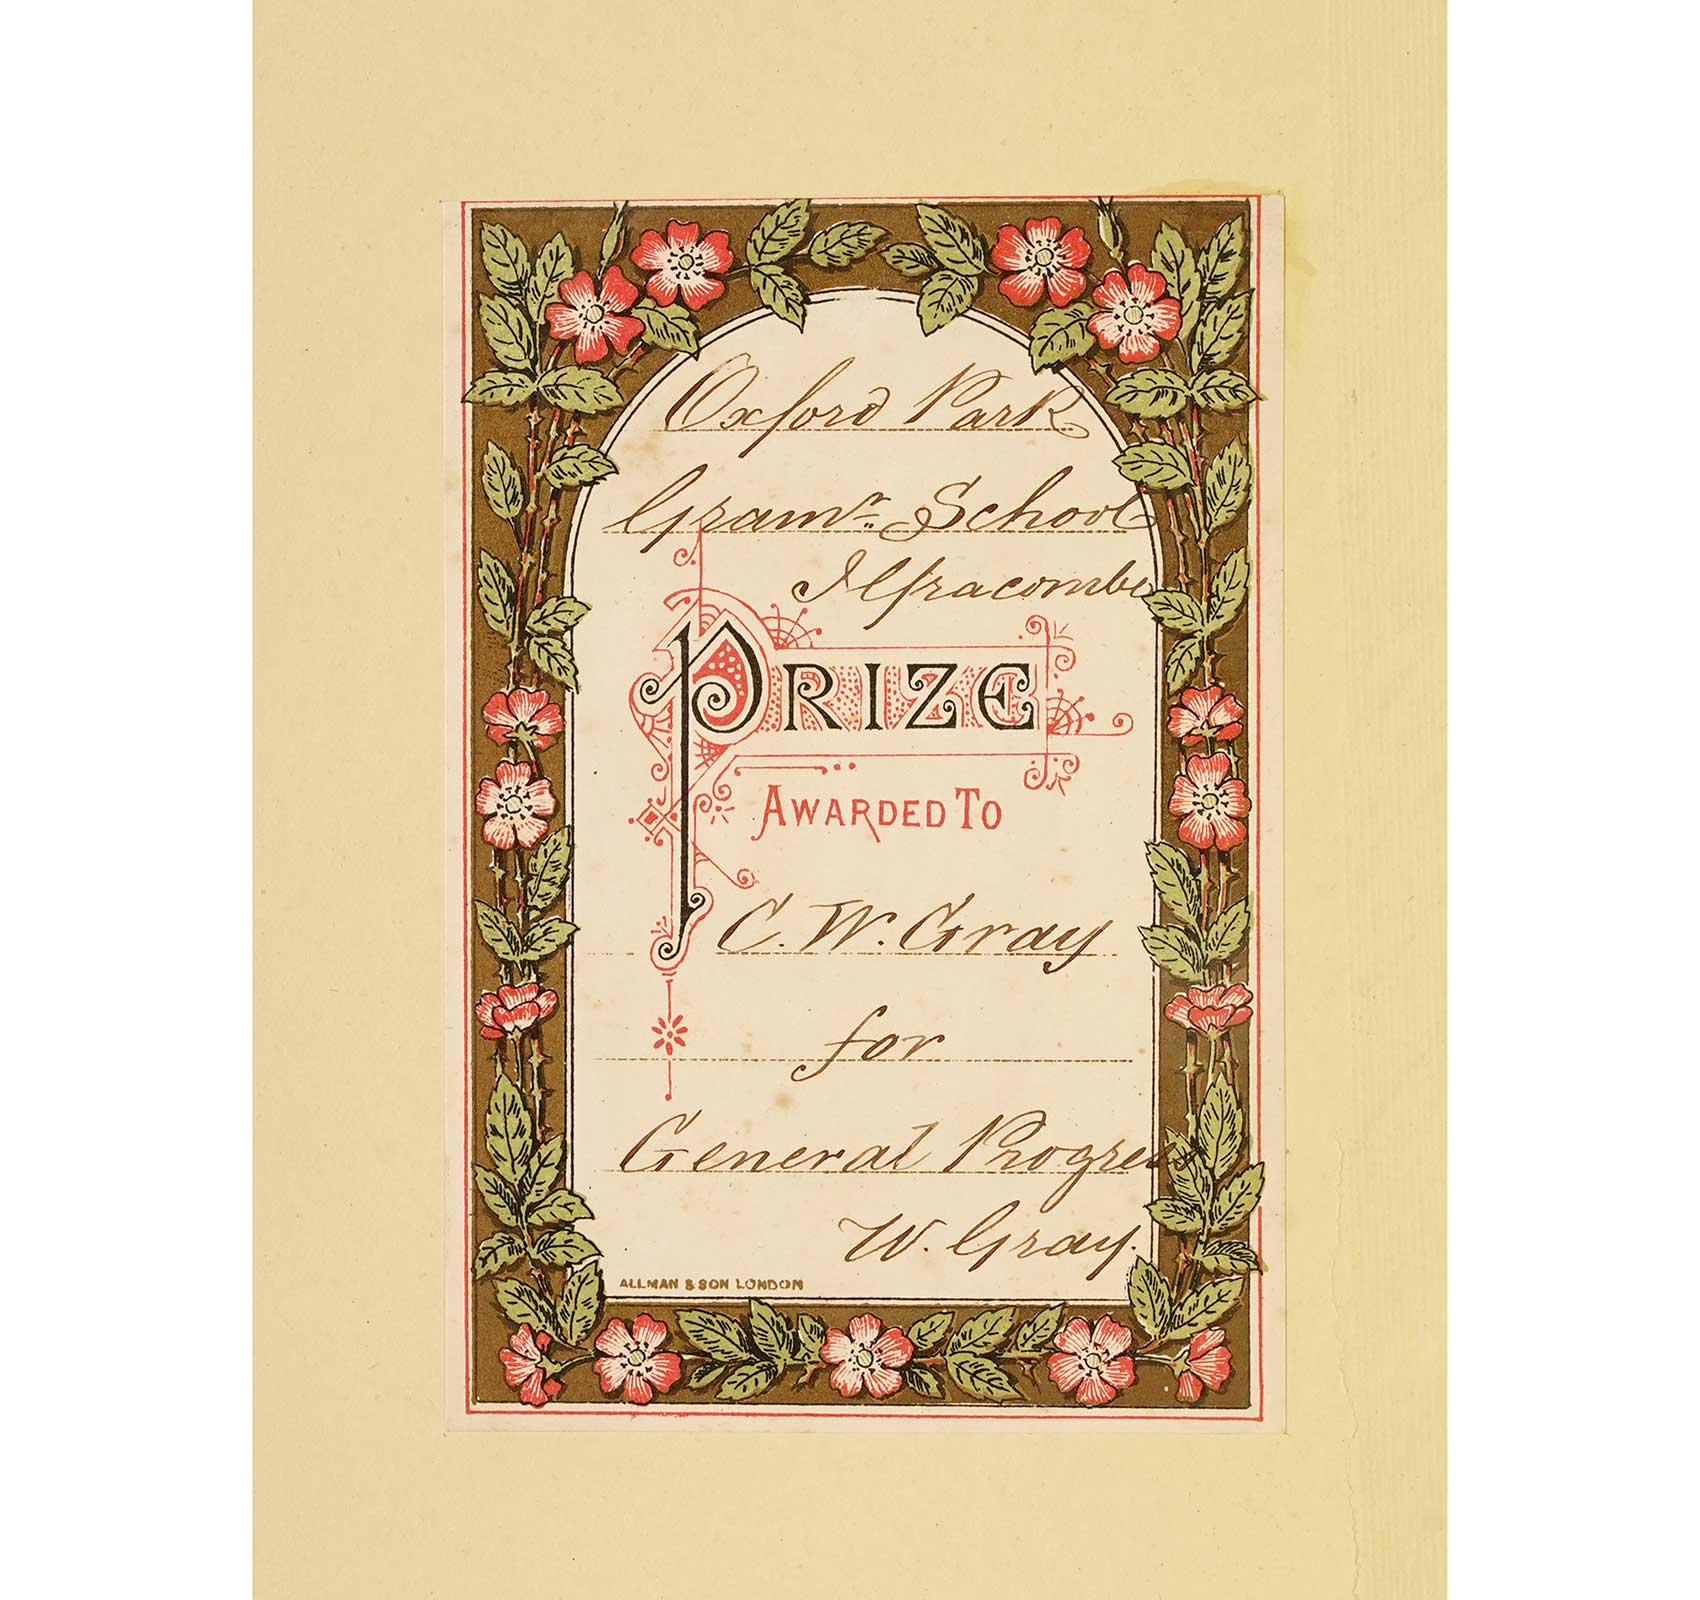 Oxford Park
Gramr. School
Ilfracombe
PRIZE
AWARDED TO
C. W. Gray
for
General Progress
W. Gray.
ALLMAN & SON LONDON